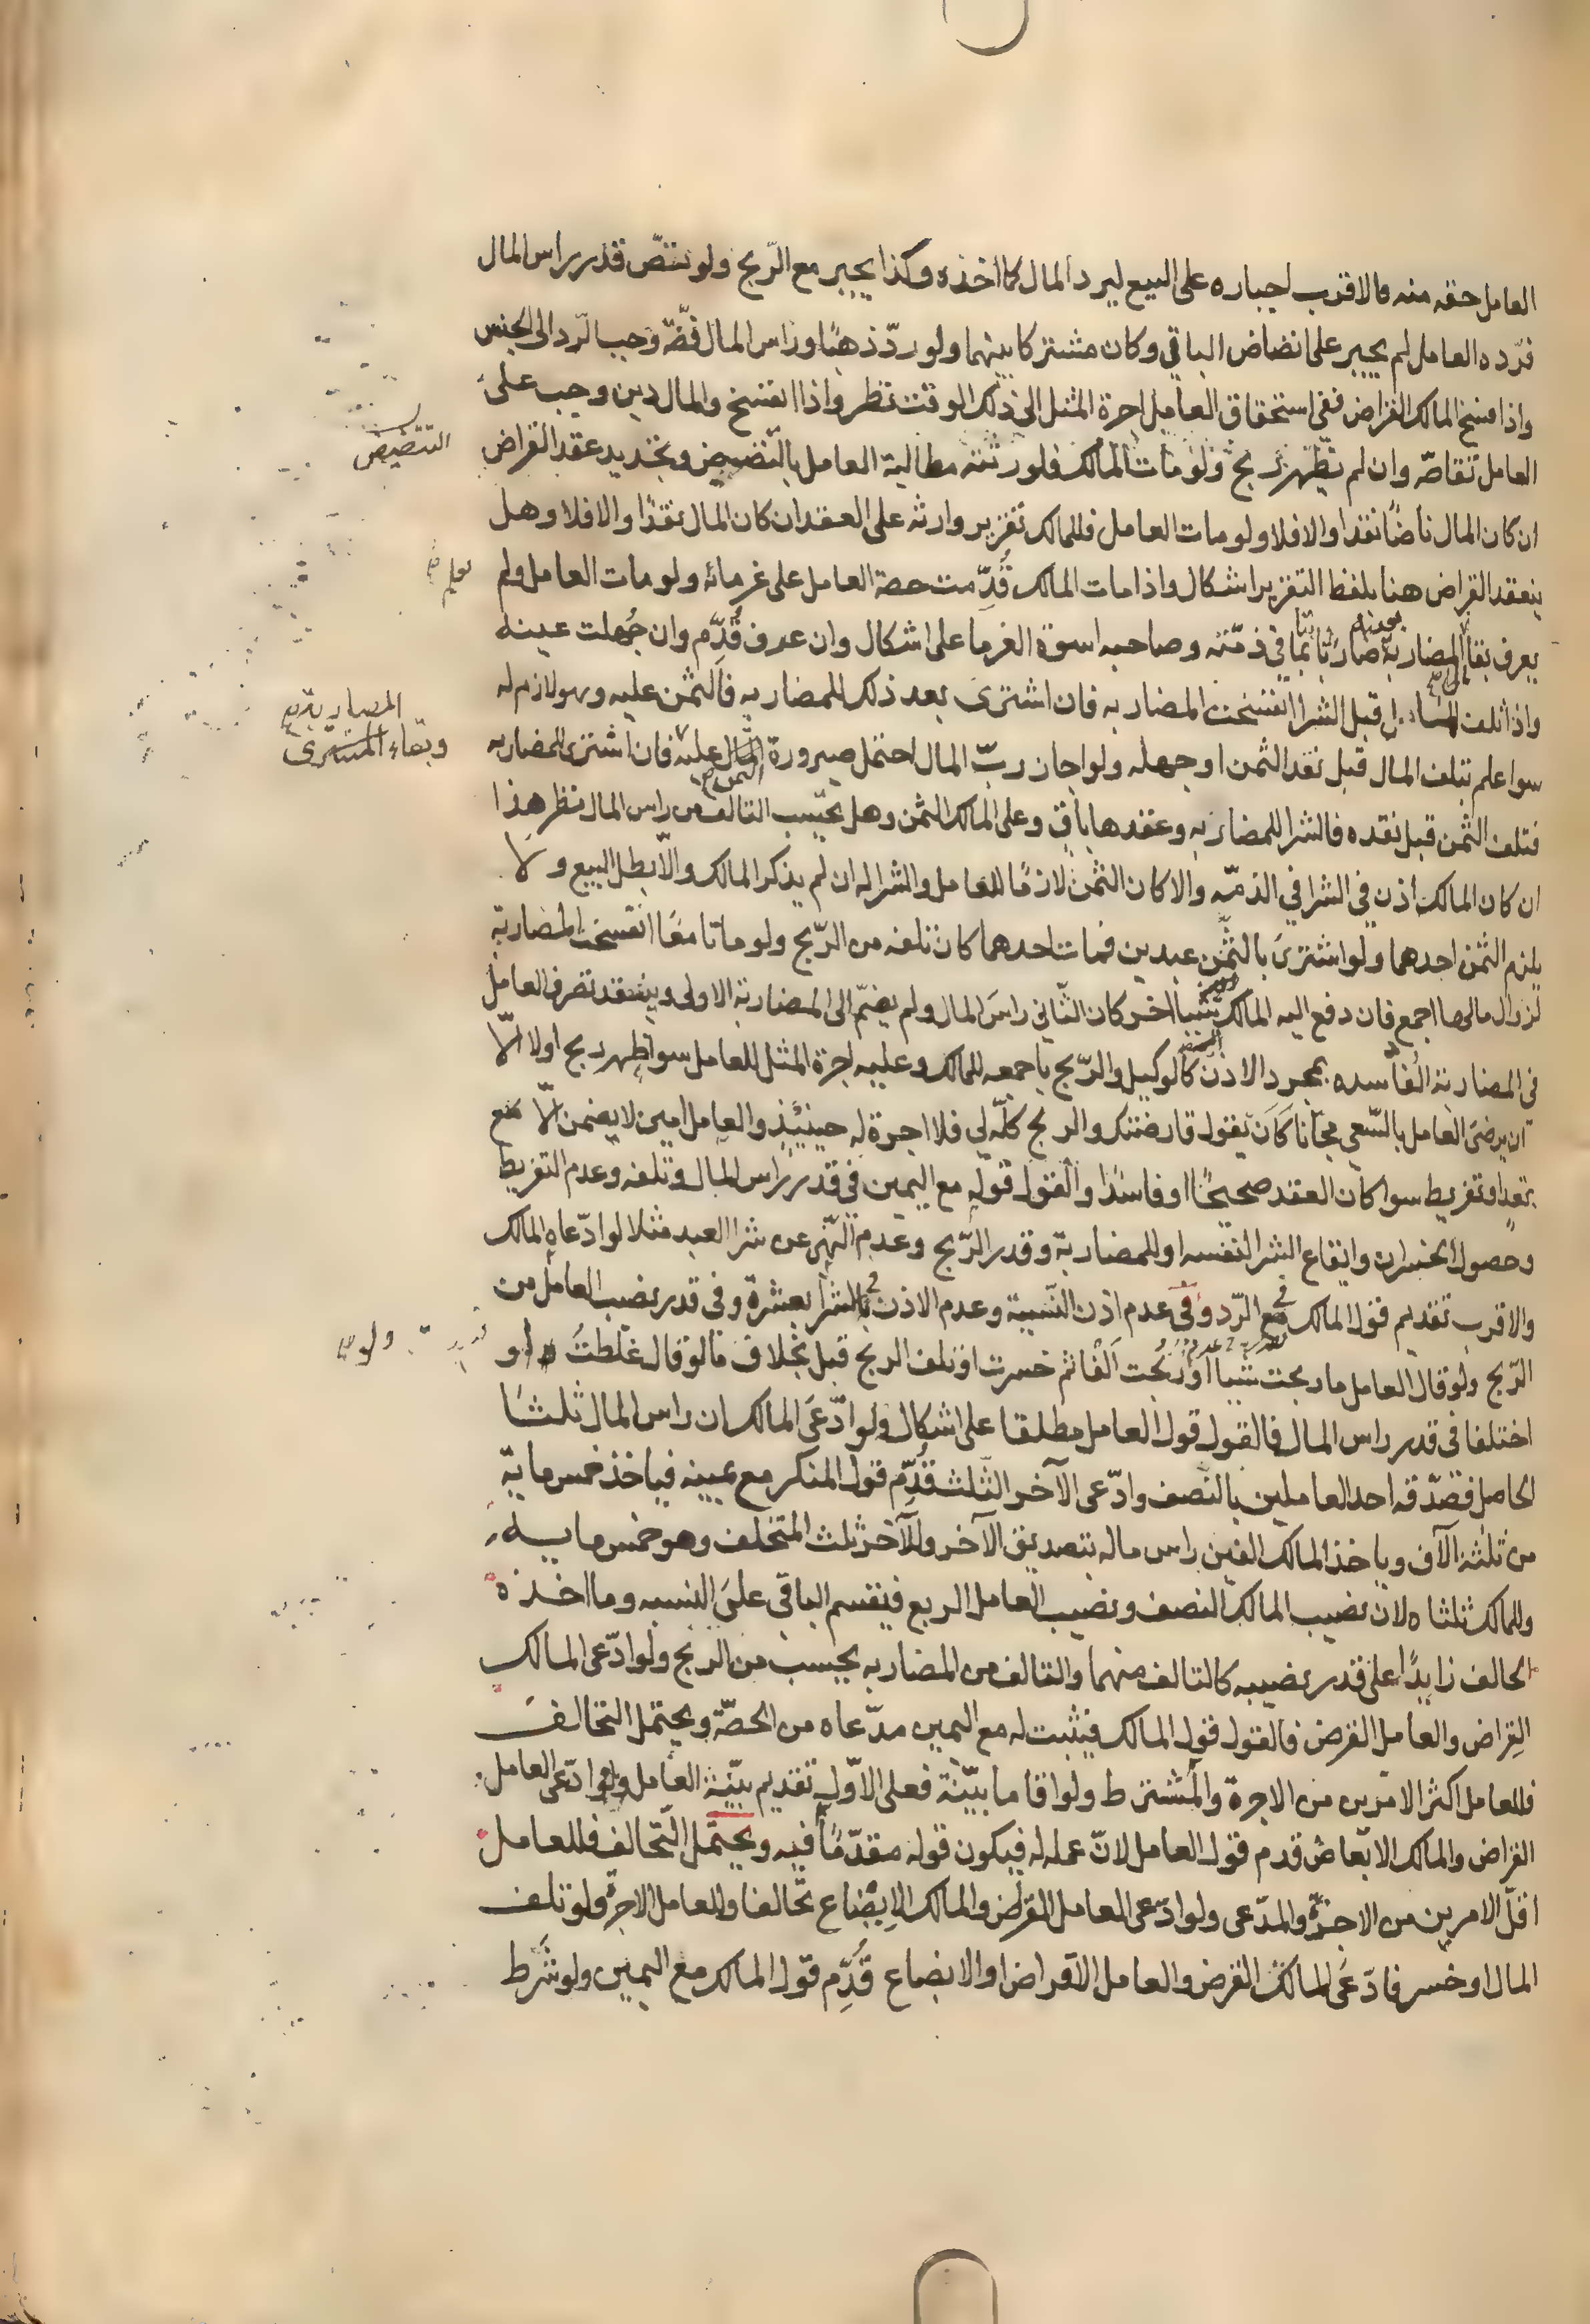 العامل حقه منه فالاقرب اجباره على البيع ليرد المال كما اخذه وكذا يجبر مع الرّبح ولو نضّ قدر راس المال
فرّده العامل لم يجبر على انضاض الباقي وكان مشتركا بينهما ولو ردّ ذهبًا وراس المال فضّة وجب الرّد الى الجنس
واذا فسخ المالك القراض ففي استحقاق العامل اجرة المثل الى ذلك الوقت نظر واذا انفسخ والمال دين وجب على
العامل تقاضه وان لم يظهر ربح ولو مات المالك فلورثته مطالبة العامل بالتنضيض وتجديد عقد القراض
التنضيض
ان كان المال ناضًا نقدا والا فلا ولو مات العامل فللمالك تقرير وارثه على العقد ان كان المال نقدًا والا فلا وهل
ينعقد القراض هنا بلفظ التقرير اشكال واذا مات المالك قُدِّمت حصة العامل على غرمائه ولو مات العامل ولم
يعلم
يعرف بقا المضاربة صار ثابتا في ذمّته وصاحبه اسوة الغرما على اشكال وان عرف قُدِّم وان جُهلت عينه
واذا تلف المال قبل الشرا انفسخت المضاربه فان اشترى بعد ذلك للمضاربه فالثمن عليه وهو لازم له
المضاربة
سوا علم تبلف المال قبل نقد الثمن او جهله ولو اجاز ربّ المال احتمل صيرورة الثمن عليه فان اشترى للمضاربه
وبقاء المشترى
فتلف الثمن قبل نقده فالشرا للمضاربه وعقدها باق وعلى المالك الثمن وهل يحتسب التالف من راس المال نظر هذا
ان كان المالك اذن في الشرا في الذمّه والا كان الثمن لازمًا للعامل والشرا له ان لم يذكر المالك والّا بطل البيع ولا
يلزم الثمن احدهما ولو اشترى بالثّمن عبدين فمات احدهما كان تلفه من الرّبح ولو ماتا معًا انفسخت المضاربة
لزوال مالها اجمع فان دفع اليه المالك شيئا اخر كان الثّاني راسَ المال ولم يضمّ الى المضاربة الاولى وينفذ تصرف العامل
في المضاربة الفاسده بمجرد الاذن كالوكيل والرّبح باجمعه للمالك وعليه اجرة المثل للعامل سوا ظهر ربح اولا الّا
ان يرضى العامل بالسّعي مجّانا كَان يقول قارضتك والربح كلّه لي فلا اجرة له حينئذٍ والعامل امين لا يضمن الّا مع
تعدٍ او تفريط سوا كان العقد صحيحًا او فاسدًا والقول قوله مع اليمين في قدر راس المال وتلفه وعدم التفريط
وحصول الخسران وايقاع الشرا لنفسه او للمضاربة وقدر الرّبح وعدم النّهي عن شرا العبد مثلا لو ادّعاه المالك
والاقرب تقديم قول المالك في الرّد وفي عدم اذن النّسية وعدم الاذن في الشرا بعشرة وفي قدر نصيب العامل من
الرّبح ولو قال العامل ما ربحت شيئا او ربحت الفًا ثم خسرت او تلف الربح قبل بخلاف ما لو قال غلطتُ او
ولو
اختلفا في قدر راس المال فالقول قول العامل مطلقا على اشكال ولو ادّعى المالك ان راس المال ثلثا
الحاصل فصدّقه احد العاملين بالنّصف وادّعى الآخر الثّلث قُدِّم قول المنكر مع يمينه فياخذ خمس ماية
من ثلثة الآف وياخذ المالك الفين راس ماله بتصديق الآخر وللآخر ثلث المتخلف وهو خمس ماية
وللمالك ثلثاه لان نصيب المالك النصف ونصيب العامل الربع فيقسم الباقي على النسبه وما اخذه
الحالف زايدًا على قدر نصيبه كالتالف منهما والتالف من المضاربه يحسب من الربح ولو ادّعى المالك
القِراض والعامل القرض فالقول قول المالك فيثبت له مع اليمين مدّعاه من الحصّة ويحتمل التحالف
فللعامل اكثر الامرين من الاجرة والمشترط ولو اقاما بيّنة فعلى الاوّل تقديم بيّنة العامل ولو ادّعى العامل
القراض والمالك الابضاع قدم قول العامل لانّ عمله له فيكون قوله مقدّمًا فيه ويحتمل التّحالف فللعامل
اقلّ الامرين من الاجرة والمدّعى ولو ادّعى العامل القرض والمالك الابضاع تحالفا وللعامل الاجرة ولو تلف
المال او خسر فادّعى المالك القرض والعامل القراض او الابضاع قُدِّم قول المالك مع اليمين ولو شَرط